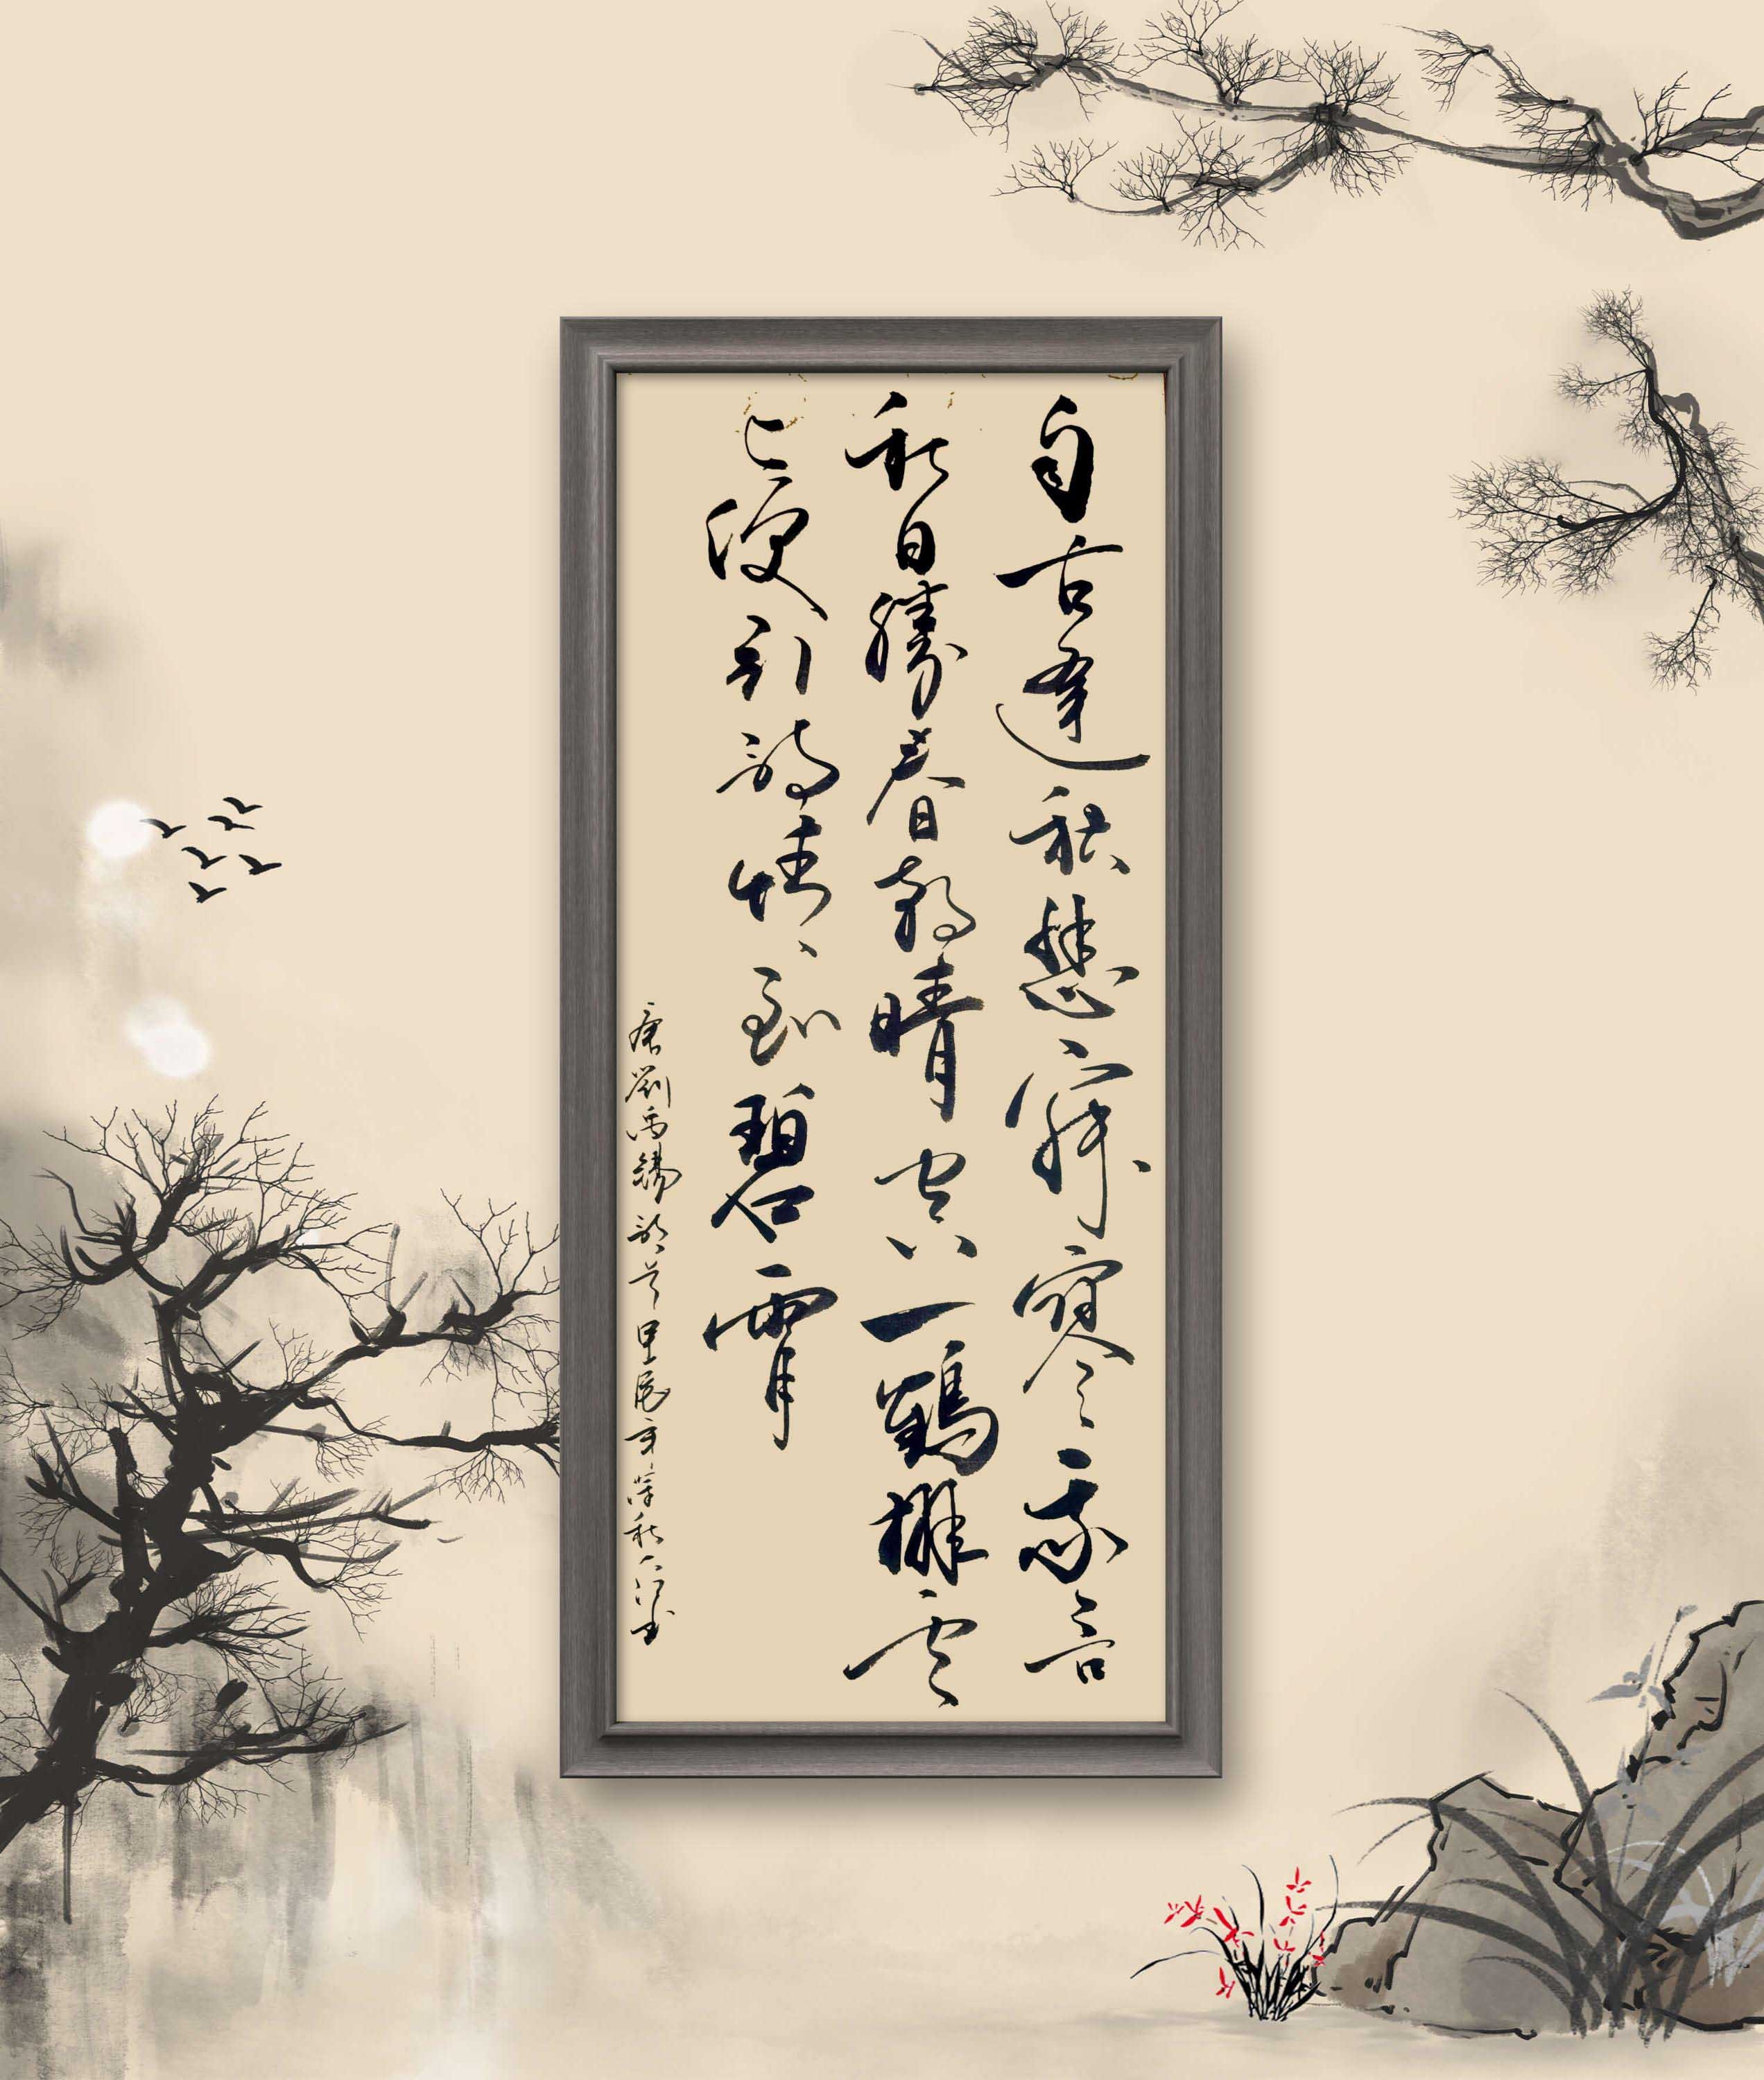 自古逢秋悲寂寥我言
秋日勝春朝晴空一鶴排雲
上便引詩情到碧霄
唐劉禹錫詩 秋 書